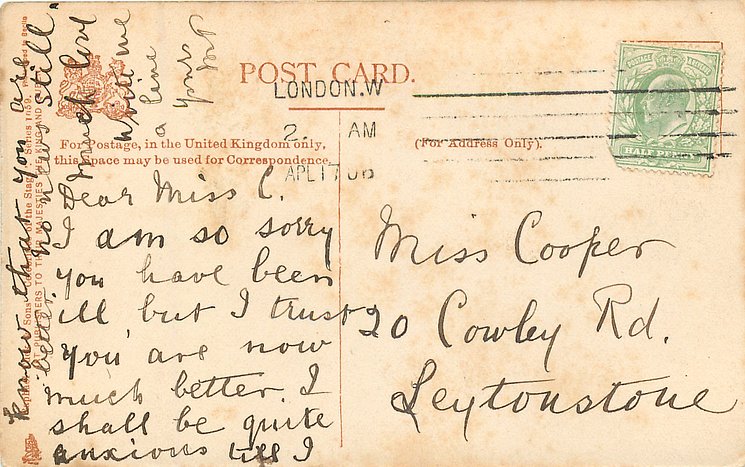 POST CARD.
LONDON.W
2. AM
APL 17 06
For Postage, in the United Kingdom only,
this Space may be used for Correspondence.
(For Address Only).
POSTAGE REVENUE
HALF PENNY
Dear Miss C.
I am so sorry
you have been
ill, but I trust
you are now
much better. I
shall be quite
anxious till I
know that you are
better. No news still.
Much love
write me
a line
yours
Miss Cooper
20 Cowley Rd.
Leytonstone
Sons
of the Stage
Series 1159.
ART PUBLISHERS TO THEIR MAJESTIES THE KING AND QUEEN